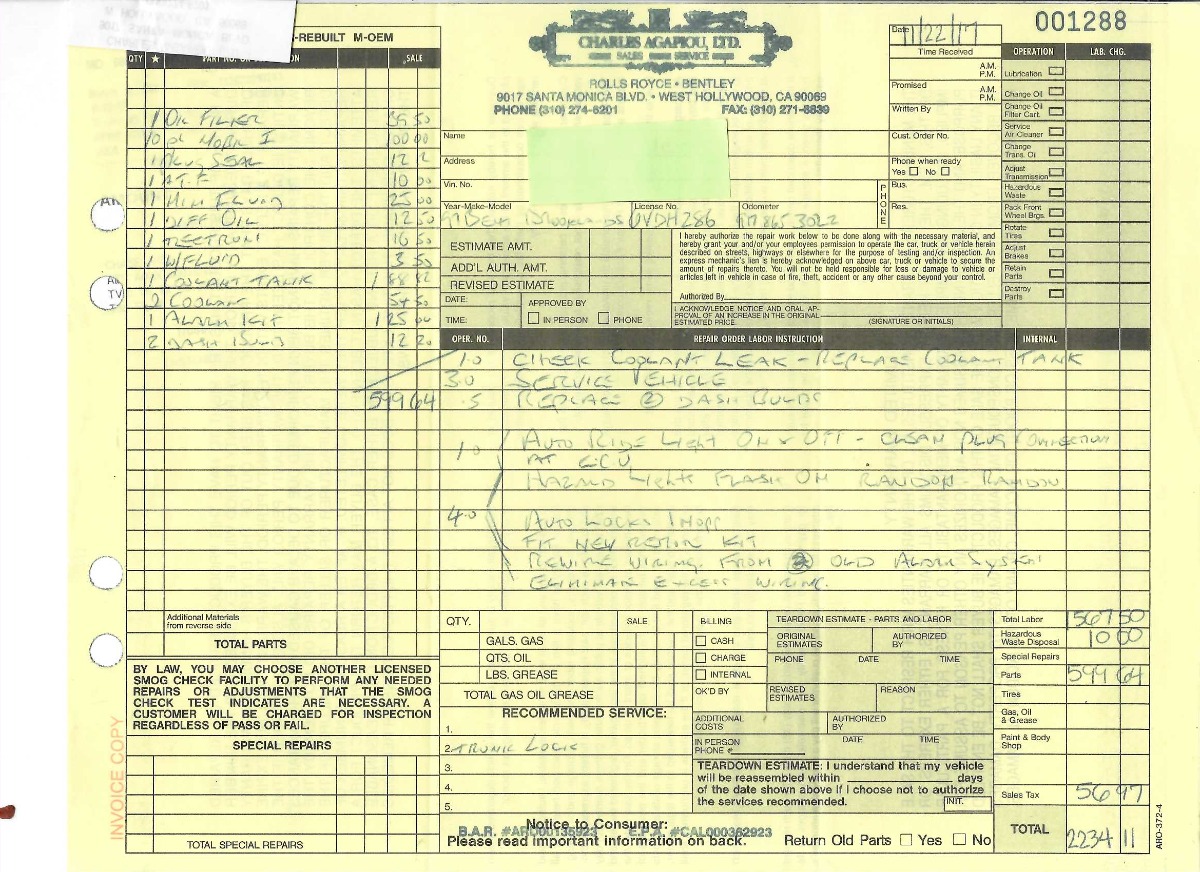 001288
-REBUILT M-OEM
QTY ★ SALE
1 OIL FILTER 39 50
10 qt MOBIL I 100 00
1 PLUG SEAL 12 2
1 A.T.F 10 00
1 MIN FLUID 25 00
1 DIFF OIL 12 50
1 TECTRON 16 50
1 W/FLUID 3 50
1 COOLANT TANK 188 82
2 COOLANT 54 50
1 ALARM KIT 125 00
2 DASH BULB 12 20
599 64
Additional Materials
from reverse side
TOTAL PARTS
BY LAW, YOU MAY CHOOSE ANOTHER LICENSED
SMOG CHECK FACILITY TO PERFORM ANY NEEDED
REPAIRS OR ADJUSTMENTS THAT THE SMOG
CHECK TEST INDICATES ARE NECESSARY. A
CUSTOMER WILL BE CHARGED FOR INSPECTION
REGARDLESS OF PASS OR FAIL.
SPECIAL REPAIRS
TOTAL SPECIAL REPAIRS
INVOICE COPY
CHARLES AGAPIOU, LTD.
SALES SERVICE
ROLLS ROYCE • BENTLEY
9017 SANTA MONICA BLVD. • WEST HOLLYWOOD, CA 90069
PHONE (310) 274-6201 FAX: (310) 271-8839
Date 11/22/17
Time Received
A.M.
P.M.
Promised A.M.
P.M.
Written By
Cust. Order No.
Phone when ready
Yes No
PHONE
Bus.
Res.
Name
Address
Vin. No.
Year-Make-Model License No. Odometer
OVDH286
ESTIMATE AMT.
ADD'L AUTH. AMT.
REVISED ESTIMATE
DATE: APPROVED BY
TIME: IN PERSON PHONE
I hereby authorize the repair work below to be done along with the necessary material, and
hereby grant your and/or your employees permission to operate the car, truck or vehicle herein
described on streets, highways or elsewhere for the purpose of testing and/or inspection. An
express mechanic's lien is hereby acknowledged on above car, truck or vehicle to secure the
amount of repairs thereto. You will not be held responsible for loss or damage to vehicle or
articles left in vehicle in case of fire, theft, accident or any other cause beyond your control.
Authorized By
I ACKNOWLEDGE NOTICE AND ORAL AP-
PROVAL OF AN INCREASE IN THE ORIGINAL
ESTIMATED PRICE. (SIGNATURE OR INITIALS)
OPERATION LAB. CHG.
Lubrication
Change Oil
Change Oil
Filter Cart.
Service
Air Cleaner
Change
Trans. Oil
Adjust
Transmission
Hazardous
Waste
Pack Front
Wheel Brgs.
Rotate
Tires
Adjust
Brakes
Retain
Parts
Destroy
Parts
OPER. NO. REPAIR ORDER LABOR INSTRUCTION INTERNAL
1.0 CHECK COOLANT LEAK - REPLACE COOLANT TANK
3.0 SERVICE VEHICLE
.5 REPLACE ② DASH BULBS
1.0 AUTO RIDE LIGHT ON & OFF - CLEAN PLUG CONNECTION
AT ECU
HAZARD LIGHTS FLASH ON RANDON - RANDOM
4.0 AUTO LOCKS INOPP
FIT NEW REMOTE KIT
REWIRE WIRING. FROM OLD ALARM SYSTEM
ELIMINATE EXCESS WIRING.
QTY. SALE
GALS. GAS
QTS. OIL
LBS. GREASE
TOTAL GAS OIL GREASE
RECOMMENDED SERVICE:
1.
2. TRUNK LOCK
3.
4.
5.
BILLING
CASH
CHARGE
INTERNAL
OK'D BY
TEARDOWN ESTIMATE - PARTS AND LABOR
ORIGINAL
ESTIMATES AUTHORIZED
BY
PHONE DATE TIME
REVISED
ESTIMATES REASON
ADDITIONAL
COSTS AUTHORIZED
BY
IN PERSON
PHONE # DATE TIME
TEARDOWN ESTIMATE: I understand that my vehicle
will be reassembled within days
of the date shown above if I choose not to authorize
the services recommended. INIT.
Total Labor 1567 50
Hazardous
Waste Disposal 10 00
Special Repairs
Parts 599 64
Tires
Gas, Oil
& Grease
Paint & Body
Shop
Sales Tax 56 97
TOTAL 2234 11
Notice to Consumer:
B.A.R. #ARD00135923 E.P.A. #CAL000362923
Please read important information on back.
Return Old Parts Yes No
ARO-372-4